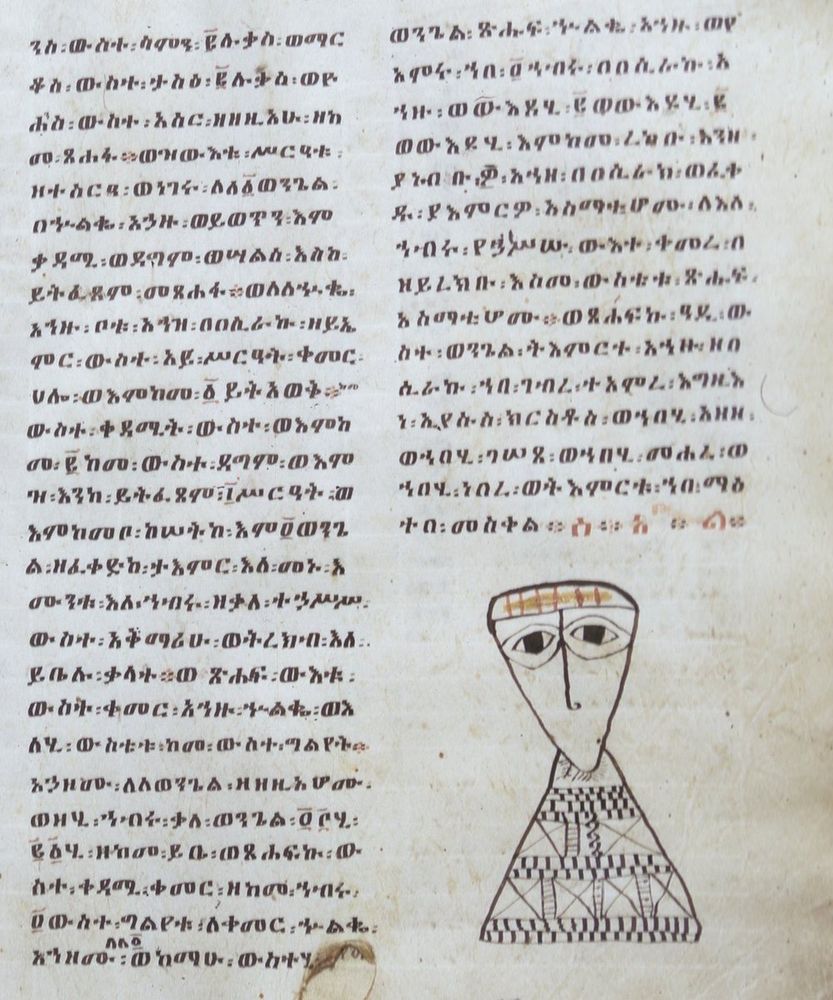 ንስ፡ውስተ፡ሳመን፡፪ሉቃስ፡ወማር
ቆስ፡ውስተ፡ታስዕ፡፪ሉቃስ፡ወዮ
ሐስ፡ውስተ፡አስር፡ዘዘዚአሁ፡ዘከ
መ፡ጸሐፋ፡ወዝውእቱ፡ሥርዓቱ፡
ዘተሰርዓ፡ወነገሩ፡ለለ፩ወንጌል፡
በኍልቈ፡አኃዙ፡ወይወጥን፡እም
ቃዳሚ፡ወዳግም፡ወሣልስ፡እስከ፡
ይትፌጸም፡መጸሐፋ፡ወለለኍቈ፡
አኀዙ፡ቦቱ፡አኀዝ፡በበሲራኩ፡ዘይኤ
ምር፡ውስተ፡አይ፡ሥርዓት፡ቀመር፡
ሀሎ፡ወእምከመ፡፩ይትአወቅ፡
ውስተ፡ቀዳሚት፡ውስተ፡ወእምከ
መ፡፪ከመ፡ውስተ፡ዳግም፡ወእም
ዝ፡እንከ፡ይትፌጸም፡፲ሥርዓት፡ወ
እምከመቦ፡ከሠትከ፡እም፬ወንጌ
ል፡ዘፈቀድከ፡ታእምር፡እለ፡መኑ፡እ
ሙንቱ፡እለ፡ኀብሩ፡ዘቃለ፡ተኃሥሥ፡
ውስተ፡አቅማሪሁ፡ወትረክብ፡እለ፡
ይቤሉ፡ቃላተ፡ወጽሐፍ፡ውእቱ፡
ውስት፡ቀመር፡አኀዙ፡ኍልቈ፡ወእ
ለሂ፡ውስቴቱ፡ከመ፡ውስተ፡ግልየት፡
አኃዘሙ፡ለለወንጌል፡ዘዘዚአሆሙ፡
ወዘሂ፡ኀብሩ፡ቃለ፡ወንጌል፡
ዘከመ፡ይቤ፡ወጸሐፍኩ፡ው
ስተ፡ቀዳሚ፡ቀመር፡ዘከመ፡ኀብሩ፡
፬ውስተ፡ግልየቱ፡ለቀመር፡ኍልቈ፡
አኀዘሙ፡ለለ፩፡ወከማሁ፡ውስተሂ፡
ወንጌል፡ጽሑፍ፡ኍልቈ፡አኀዙ፡ወየ
አምሩ፡ኀበ፡፬ኀብሩ፡በበሲራኩ፡አ
ኀዙ፡ወ፡ወውእደሂ፡፪ወውእደሂ፡፪
ወውእደሂ፡እምከመ፡ረከቡ፡አኀዘ፡
ያነብቡ፡አኀዘ፡በበሲራኩ፡ወፈቀ
ዱ፡ያእምርዎ፡አስማቲሆሙ፡ለእለ፡
ኀብሩ፡የኃሥሡ፡ውእተ፡ቀመረ፡በ
ዘይረክቡ፡እስመ፡ውስቴቱ፡ጽሑፍ፡
አስማቲሆሙ፡ወጸሐፍኩ፡ዓዲ፡ው
ስተ፡ወንጌል፡ትእምርተ፡አኀዙ፡ዘበ
ሲራኩ፡ኀበ፡ገብረ፡ተአምረ፡እግዚእ
ነ፡ኢየሱስ፡ክርስቶስ፡ወኀበሂ፡አዘዘ፡
ወኀበሂ፡ገሠጸ፡ወኀበሂ፡መሐረ፡ወ
ኀበሂ፡ነበረ፡ወትእምርቱ፡ኀበ፡ማዕ
ተበ፡መስቀል